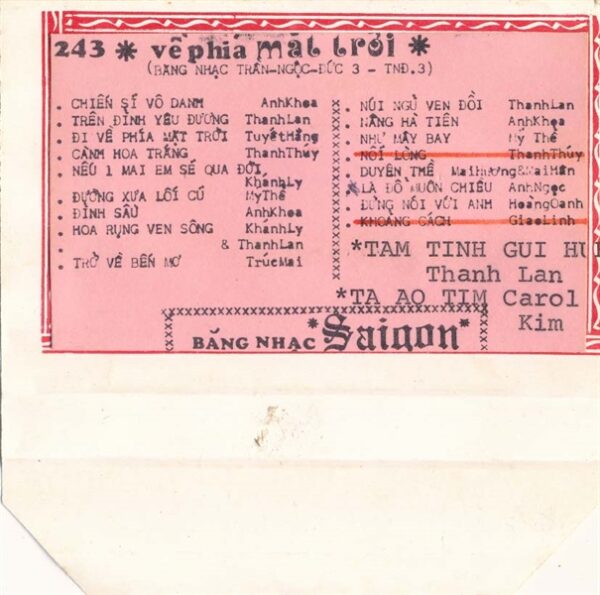 243 * về phía mặt trời *
(BĂNG NHẠC TRẦN-NGỌC-ĐỨC 3 - TNĐ.3)
. CHIẾN SĨ VÔ DANH AnhKhoa
. TRÊN ĐỈNH YÊU ĐƯƠNG ThanhLan
. ĐI VỀ PHÍA MẶT TRỜI TuyếtHằng
. CÀNH HOA TRẮNG ThanhThúy
. NẾU 1 MAI EM SẼ QUA ĐỜI
KhánhLy
. ĐƯỜNG XƯA LỐI CŨ MỹThể
. ĐÌNH SẦU AnhKhoa
. HOA RỤNG VEN SÔNG KhánhLy
. & ThanhLan
. TRỞ VỀ BẾN MƠ TrúcMai
. NÚI NGỦ VEN ĐỒI ThanhLan
. NẮNG HÀ TIÊN AnhKhoa
. NHƯ MÂY BAY Mỹ Thể
. NỖI LÒNG ThanhThúy
. DUYÊN THỀ MaiHương&MaiHân
LÁ ĐỔ MUÔN CHIỀU AnhNgọc
. ĐỪNG NÓI VỚI ANH HoàngOanh
. KHOẢNG CÁCH GiaoLinh
*TAM TINH GUI HU
Thanh Lan
*TA AO TIM Carol
Kim
BĂNG NHẠC "Saigon"